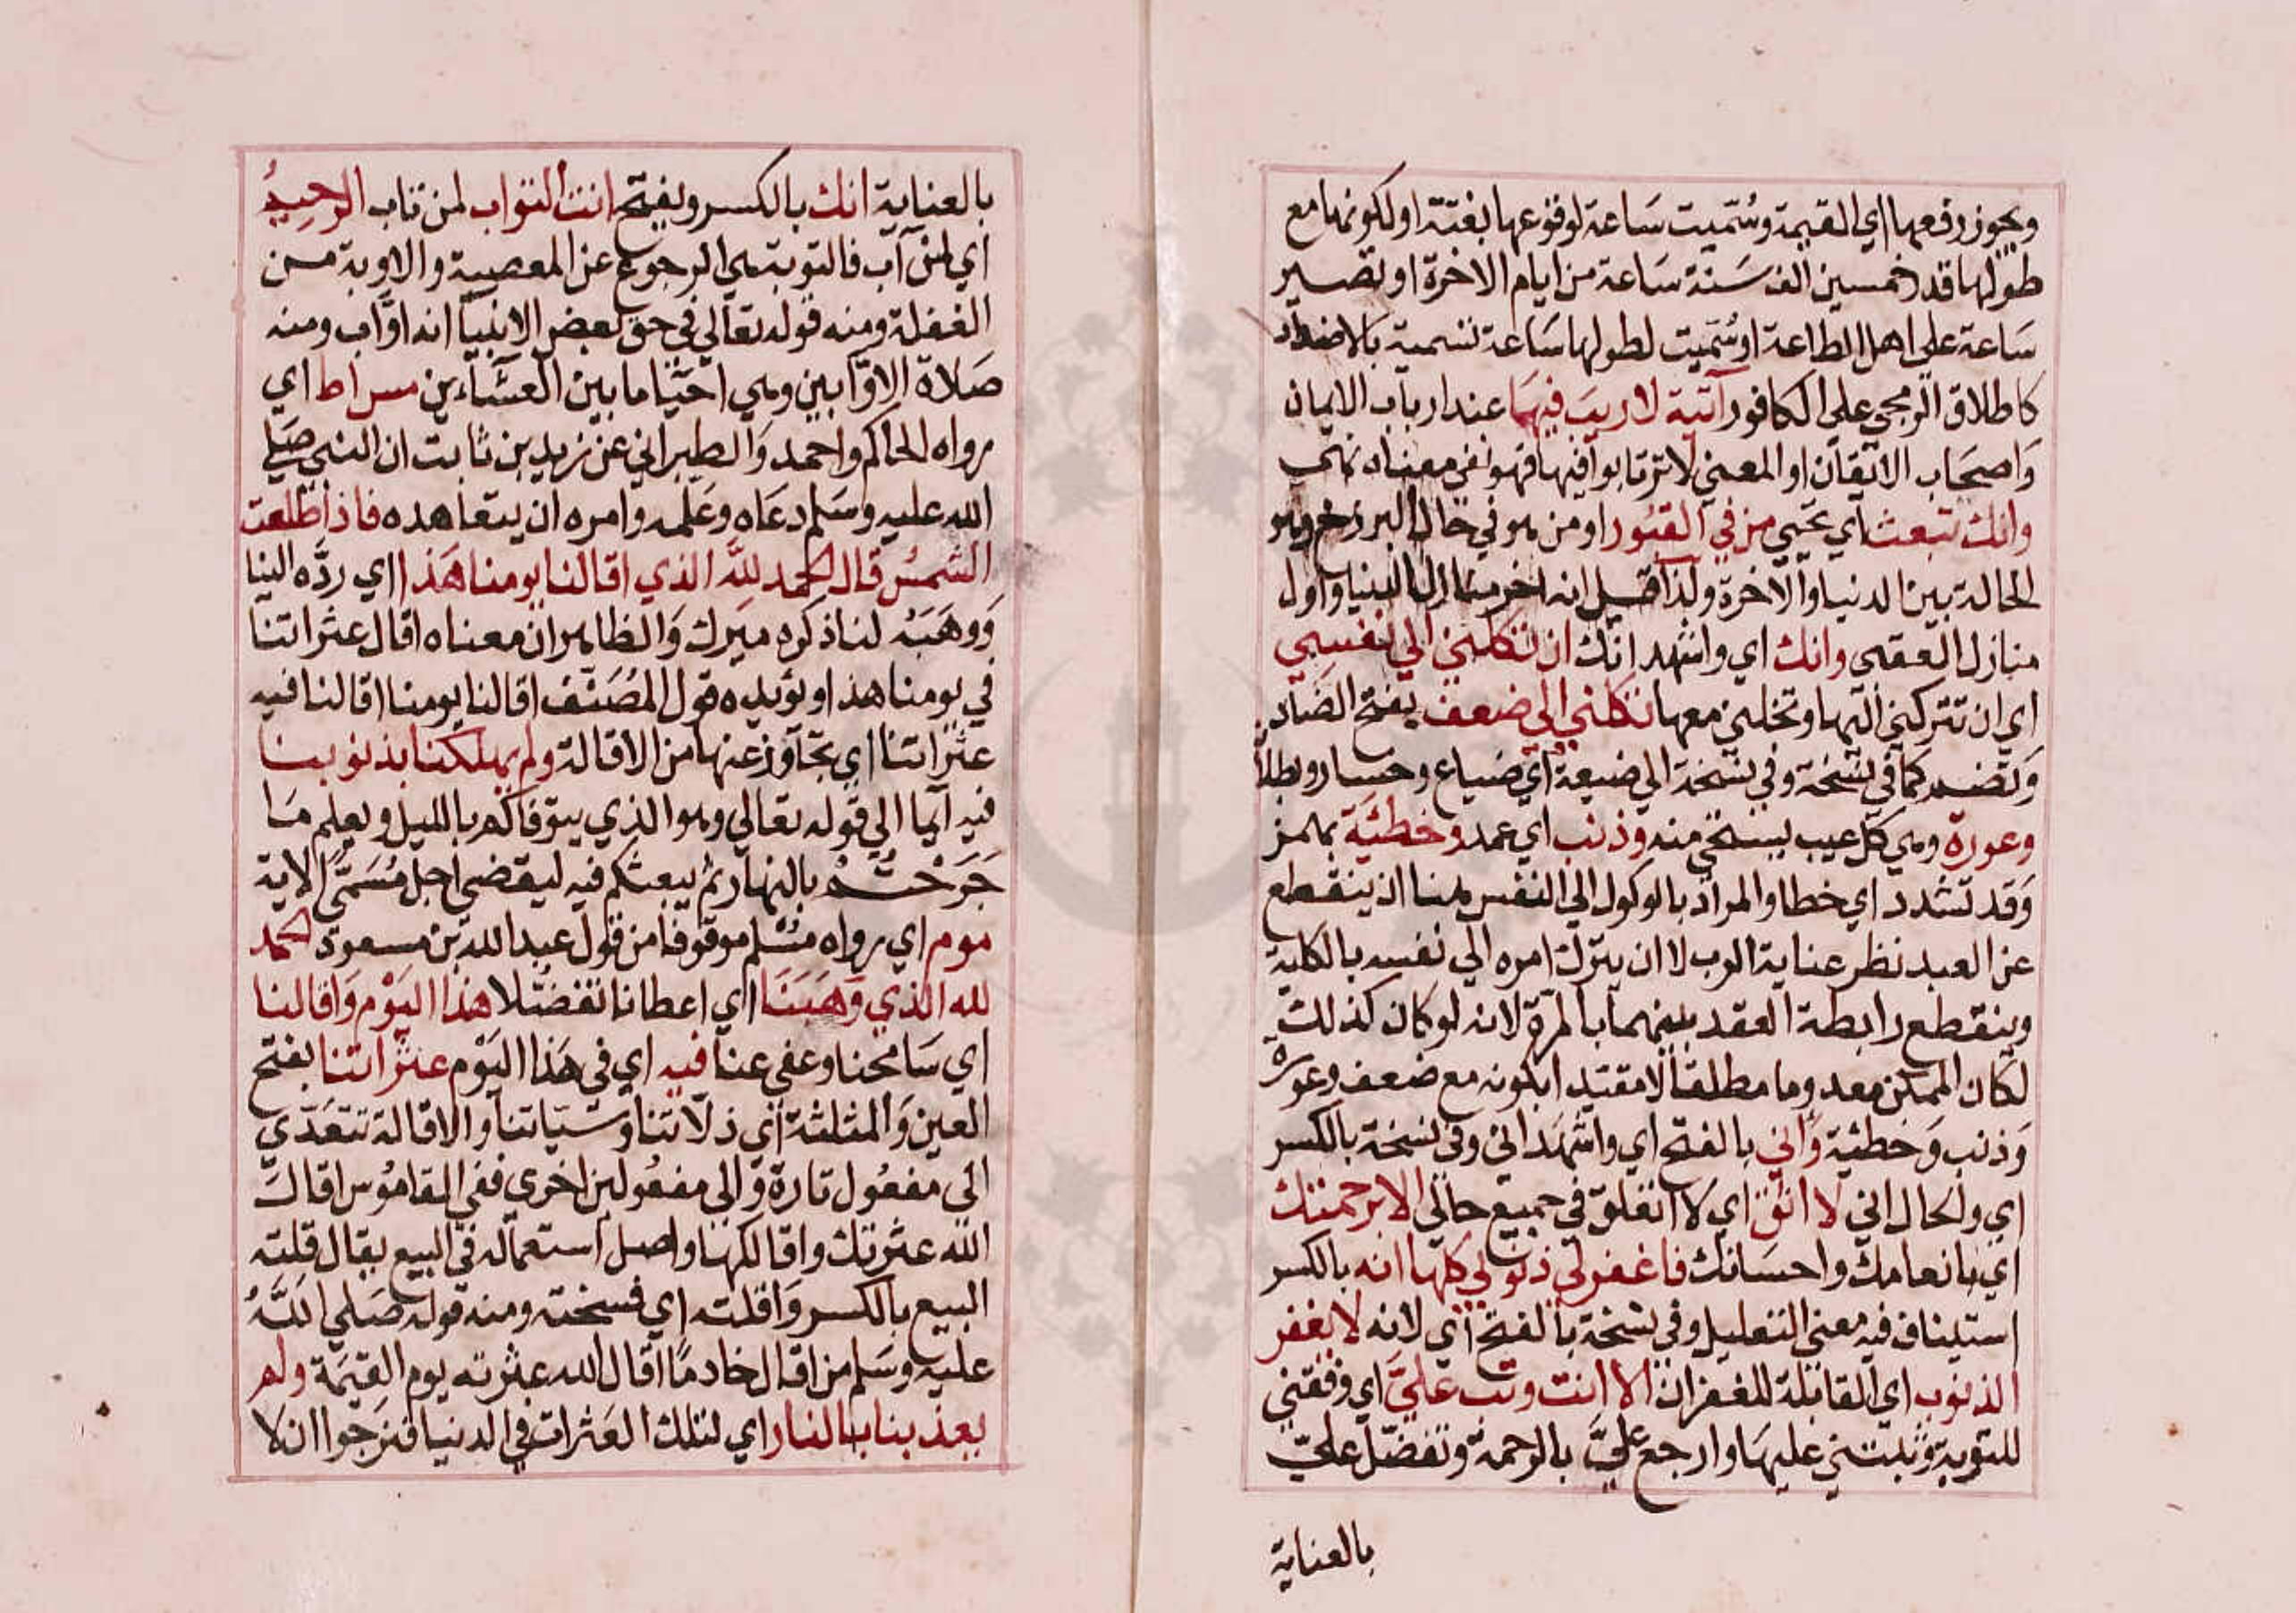 ويجوز رفعها اي القيمة وسُمّيت سَاعة لوقوعها بغتة او لكونها مع
طولها قدر خمسين الف سَنة سَاعة من ايام الاخرة او تصير
سَاعة علي اهل الطاعة او سُمّيت لطولها سَاعة تسمية بالاضداد
كاطلاق الزمجي علي الكافور آتية لا ريبَ فيهَا عند ارباب الايمان
وَاصحَاب الاتقان او المعني لا ترتابوا فيها فهو نفي معناه نهي
وانك تبعث اي تحيي من في القبُور او من هو في حال البرزخ وهو
الحالة بين الدنيا والاخرة ولذا قيل انه اخر منازل الدنيا واول
منازل العقبي وانك اي واشهد انك ان تكلني الي نفسِي
اي ان تتركني اليها وتخليني معها تكلني الي ضعف بفتح الضَاد
وتضم كما في نسخة وفي نسخة الي ضيعة اي ضياع وخسار وبطلا
وعورة وهي كل عيب يستحي منه وذنب اي عمد وخطئيَة بهمز
وَقد تشدد اي خطا والمراد بالوكول الي النفس هنا ان ينقطع
عن العبد نظر عناية الرب لا ان يترك امره الي نفسه بالكلية
وينقطع رابطة العقد بينهما بالمرة لانه لو كان كذلك
لكان الممكن معدوما مطلقا لا مقيدا بكونه مع ضعف وعورة
وَذنب وَخطئية وَاني بالفتح اي واشهَد اني وفي نسخة بالكسر
اي والحال اني لا اثق اي لا اتعلق في جميع حالي الا برحمتك
اي بانعامك واحسَانك فاغفر لي ذنوبي كلها انه بالكسر
استيناف فيه معني التعليل وفي نسخة بالفتح اي لانه لا يغفر
الذنوب اي القابلة للغفران الا انت وتب عَليَّ اي وفقني
للتوبة وثبتني عليهَا وارجع عليَّ بالرحمة وتفضّل عليّ
بالعناية
بالعناية انك بالكسر وبفتح انت التواب لمن تاب الرحيمُ
اي لمن آب فالتوبة هي الرجوع عن المعصية والاوبة من
الغفلة ومنه قوله تعالي في حق بعض الانبيَا انه اوَّاب ومنه
صَلاة الاوّابين وهي احيَا ما بين العشاءين مس اط اي
رواه الحاكم واحمد وَالطبراني عن زيد بن ثابت ان النبي صَلي
الله عليه وسَلم دعَاه وعَلمه وامره ان يتعاهده فاذا طلعت
الشمسُ قال الحمد للّه الذي اقالنا يومنا هَذا اي ردَّه الينا
وَوهَبَهُ لنا ذكره ميرك وَالظاهر ان معناه اقال عثراتنا
في يومنا هذا ويؤيده قول المُصَنّف اقالنا يومنا اقالنا فيه
عثراتنا اي تجَاوز عنها من الاقالة ولم يهلكنا بذنوبنا
فيه ايما الي قوله تعالي وهو الذي يتوفاكم بالليل ويعلم مَا
جَرَحْتُمْ بالنهار ثم يبعثكم فيه ليقضي اجل مُسَمًّي الاية
موم اي رواه مسْلم موقوفا من قول عبد الله بن مسعود الحمد
لله الذي وَهَبَنَا اي اعطانا تفضّلا هذا اليَوْم وَاقالنا
اي سَامحنا وعفي عنا فيه اي في هَذا اليَوْم عثرَاتنا بفتح
العين وَالمثلثة اي ذلاتنا وسَيّاتنا والاقالة تتعَدّي
الي مفعُول تارة وَالي مفعُولين اخري ففي القامُوس اقال
الله عثرتك واقالكها واصل استعماله في البيع يقال قلته
البيع بالكسر وَاقلته اي فسخته ومنه قوله صَلي اللّهُ
عليه وسَلم من اقال خادمًا اقال الله عثرته يوم القيمَة ولم
يعذبنا بالنار اي لتلك العَثرات في الدنيا فنرجوا ان لا